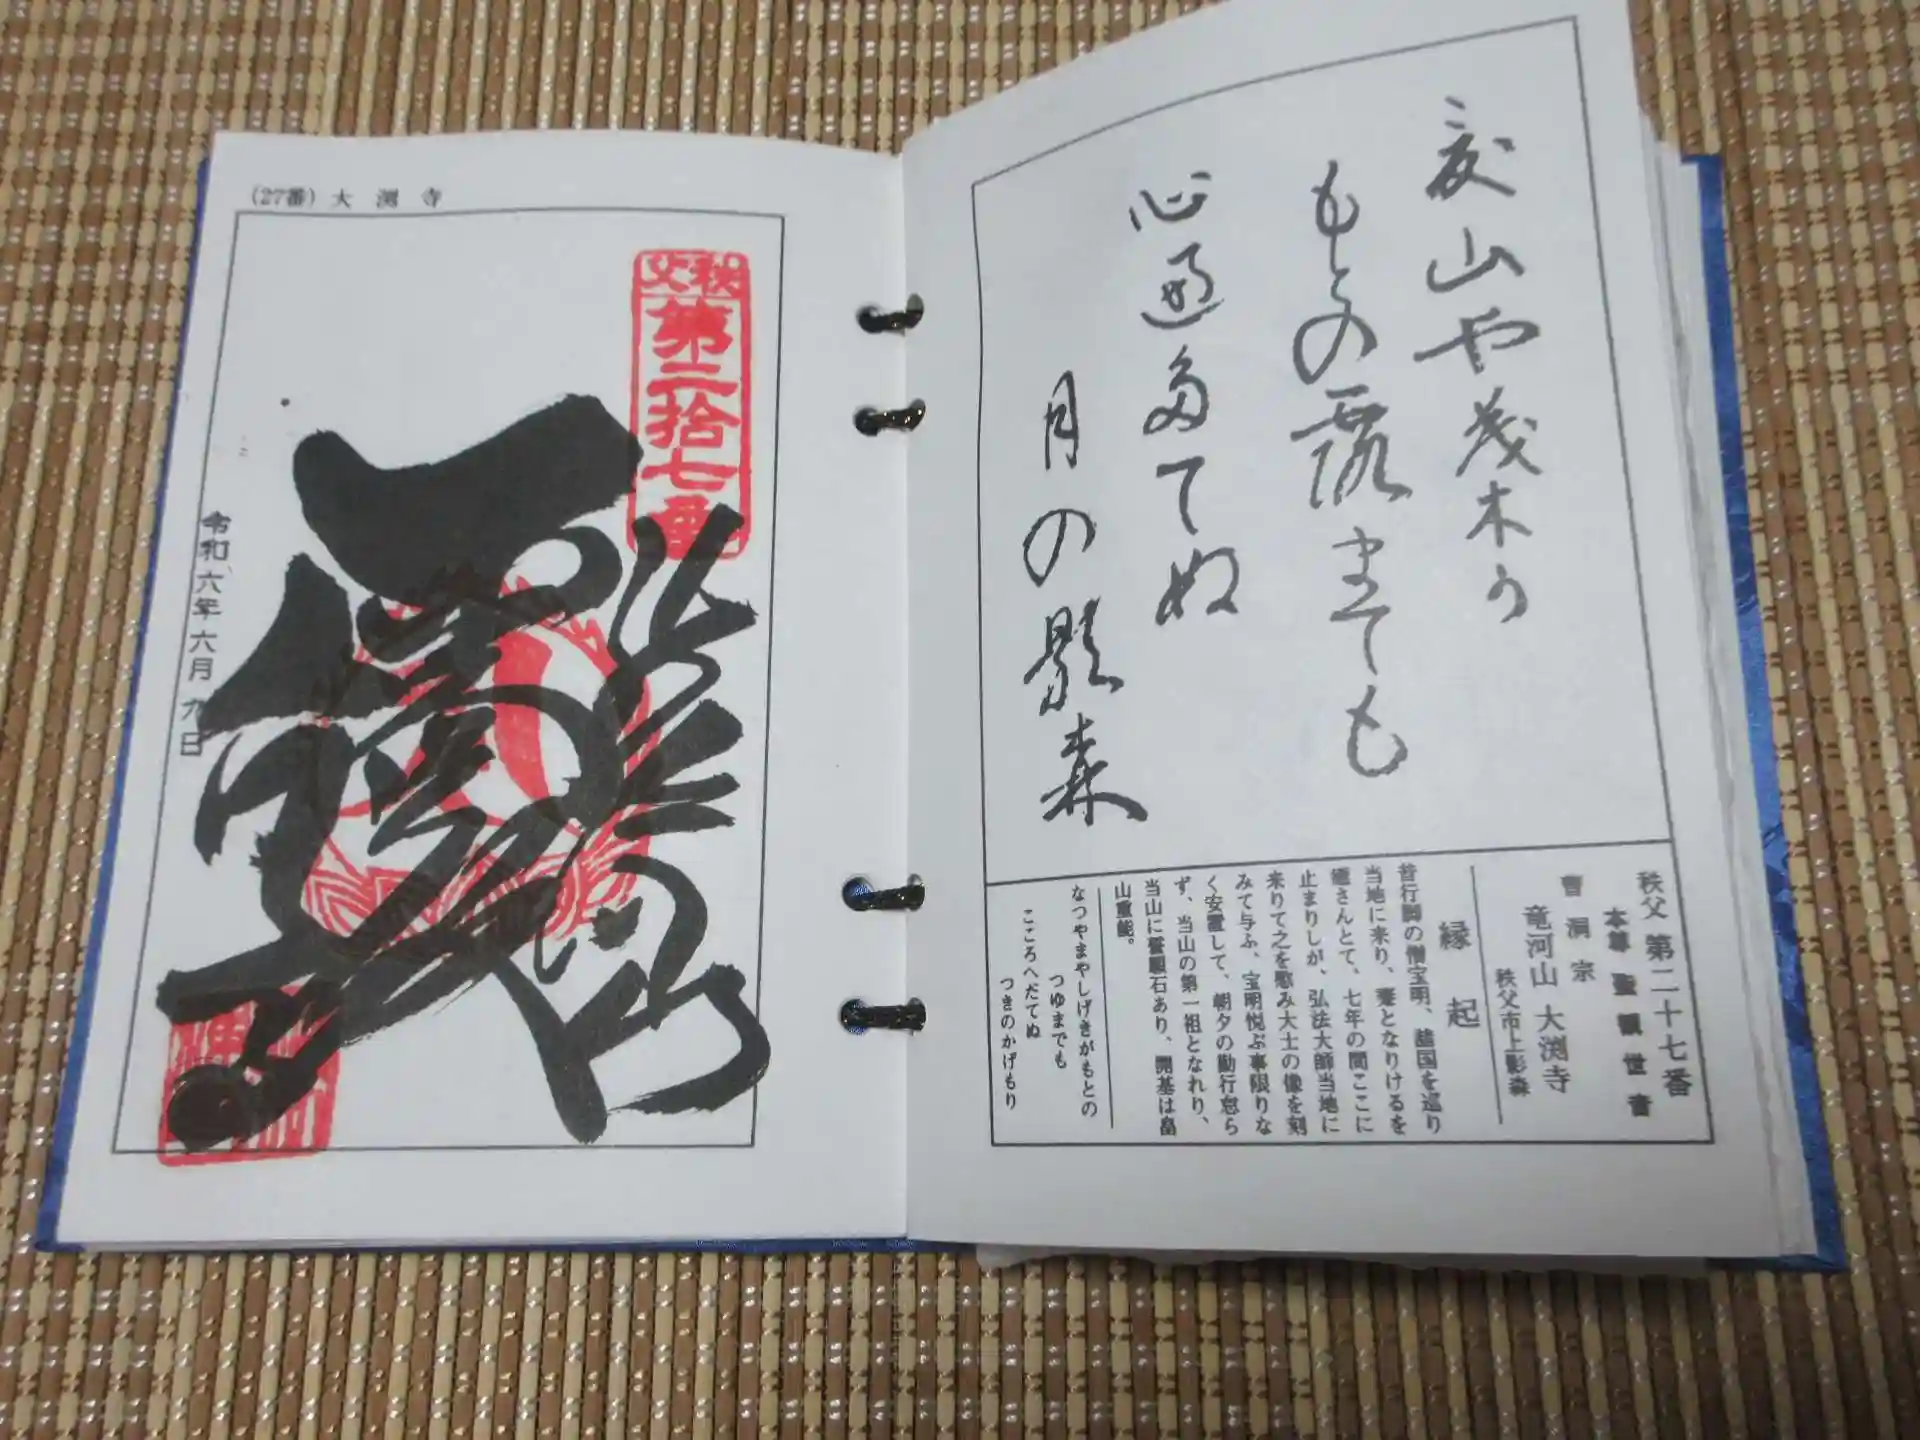 (27番) 大渕寺
秩父
第二拾七番
令和六年六月九日
夏山や茂木か
もとの露までも
心遍多てぬ
月の影森
秩父 第二十七番
本尊 聖観世音
曹洞宗
竜河山 大渕寺
秩父市上影森
縁起
昔行脚の僧宝明、諸国を巡り
当地に来り、躄となりけるを
癒さんとて、七年の間ここに
止まりしが、弘法大師当地に
来りて之を愍み大士の像を刻
みて与ふ、宝明悦ぶ事限りな
く安置して、朝夕の勤行怠ら
ず、当山の第一祖となれり、
当山に誓願石あり、開基は畠
山重能。
なつやまやしげきがもとの
つゆまでも
こころへだてぬ
つきのかげもり